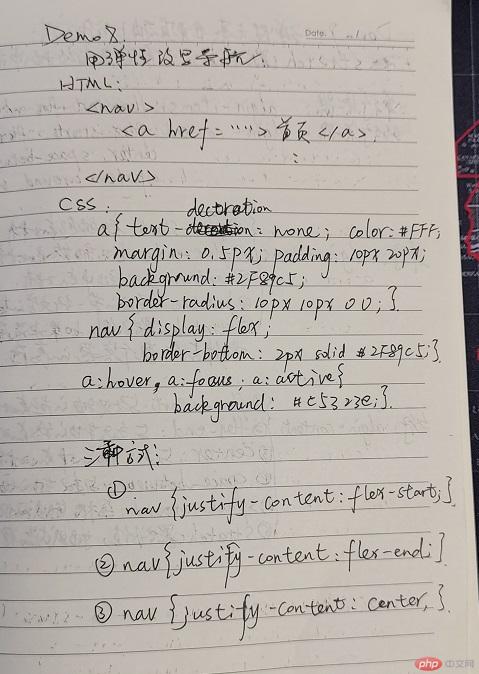 Demo 8.
Date.
用弹性改写导航.
HTML:
<nav>
<a href = "...."> 首页 </a>
⋮
</nav>
CSS:
a{ text-decoration: none; color: #FFF;
margin: 0.5px; padding: 10px 20px;
background: #2F89c5;
border-radius: 10px 10px 0 0; }
nav{ display: flex;
border-bottom: 2px solid #2F89c5;}
a:hover, a:focus, a:active{
background: #c5323e;}
三种方式:
① nav {justify-content: flex-start;}
② nav{justify-content: flex-end;}
③ nav {justify-content: center;}
php 中文网